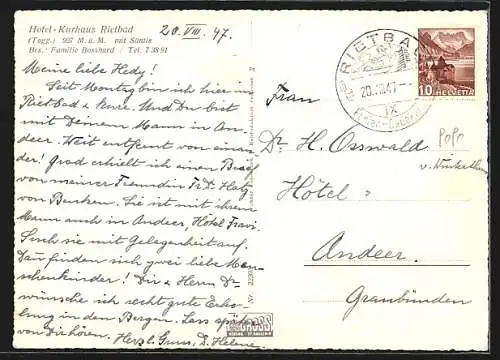 Hotel-Kurhaus Rietbad
(Togg.) 927 M. ü. M. mit Säntis
Bes.: Familie Bosshard / Tel. 7 38 91
20. VIII. 47.
Meine liebe Hedy!
Seit Montag bin ich hier im
Rietbad z. Kure. Und Du bist
mit Deinem Mann in An-
deer. Weit entfernt von einan-
der! Grad erhielt ich einen Brief
von meiner Freundin Fr. Dr. Hotz
von Buchen. Sie ist mit ihrem
Mann auch in Andeer, Hôtel Fravi.
Such sie mit Gelegenheit auf.
Dann finden sich zwei liebe Men-
schenkinder! Dir & Herrn Dr.
wünsche ich recht gute Erho-
lung in den Bergen. Lass später
von Dir hören. Herzl. Gruss, D. Helene.
RIETBAD
20.VIII.47
IX
10 HELVETIA
Frau
Dr. H. Osswald
v. Winterthur
Hôtel
Andeer.
Graubünden
GROSS